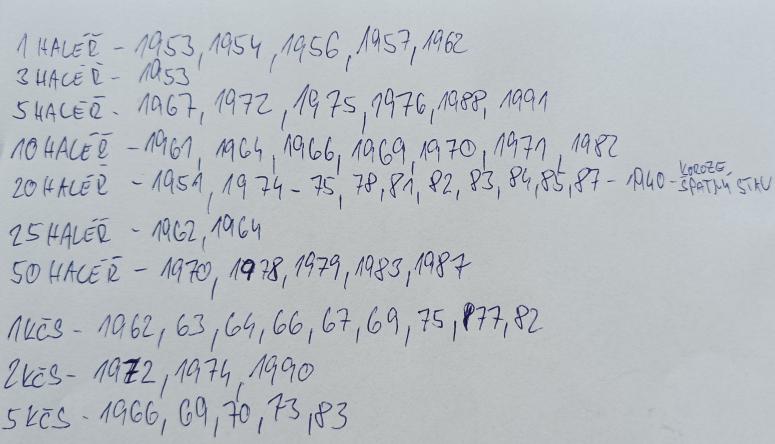 1 HALÉŘ - 1953, 1954, 1956, 1957, 1962
3 HALÉŘ - 1953
5 HALÉŘ - 1967, 1972, 1975, 1976, 1988, 1991
10 HALÉŘ - 1961, 1964, 1966, 1969, 1970, 1971, 1982
20 HALÉŘ - 1951, 1974 - 75, 78, 81, 82, 83, 84, 85, 87 - 1940 - KOROZE, ŠPATNÝ STAV
25 HALÉŘ - 1962, 1964
50 HALÉŘ - 1970, 1978, 1979, 1983, 1987
1 KČS - 1962, 63, 64, 66, 67, 69, 75, 77, 82
2 KČS - 1972, 1974, 1990
5 KČS - 1966, 69, 70, 73, 83